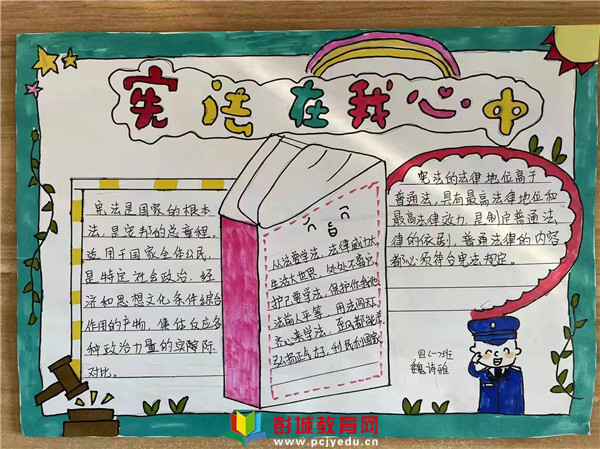 宪法在我心中
宪法是国家的根本
法，是安邦的总章程，
适用于国家全体公民，
是特定社会政治、经
济和思想文化条件综合
作用的产物，集体反应各
种政治力量的实际
对比。
从法要学法，法律威力大
生活大世界，处处不离它
护己要学法，保护你我他
法前人平等，用法
齐心来学法，
弘扬正气
利民利国家
宪法的法律地位高于
普通法，具有最高法律地位和
最高法律效力，是制定普通法
律的依剧，普通法律的内容
都必须符合宪法规定。
四(一)班
魏诗雅
彭城教育网
www.pcjyedu.cn